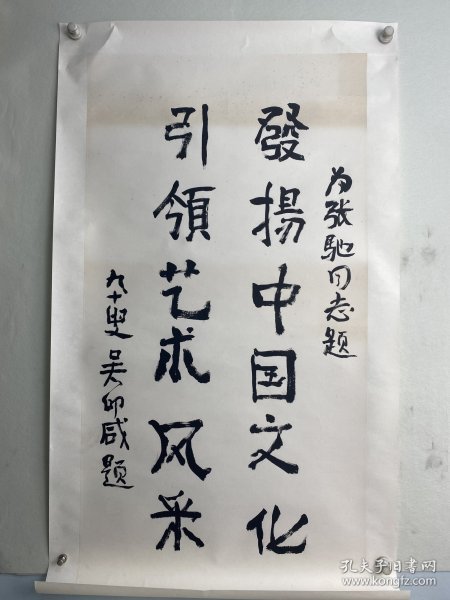 为张驰同志题
發揚中国文化
引領艺术风采
九十叟 吴印咸题
孔夫子旧书网
www.kongfz.com